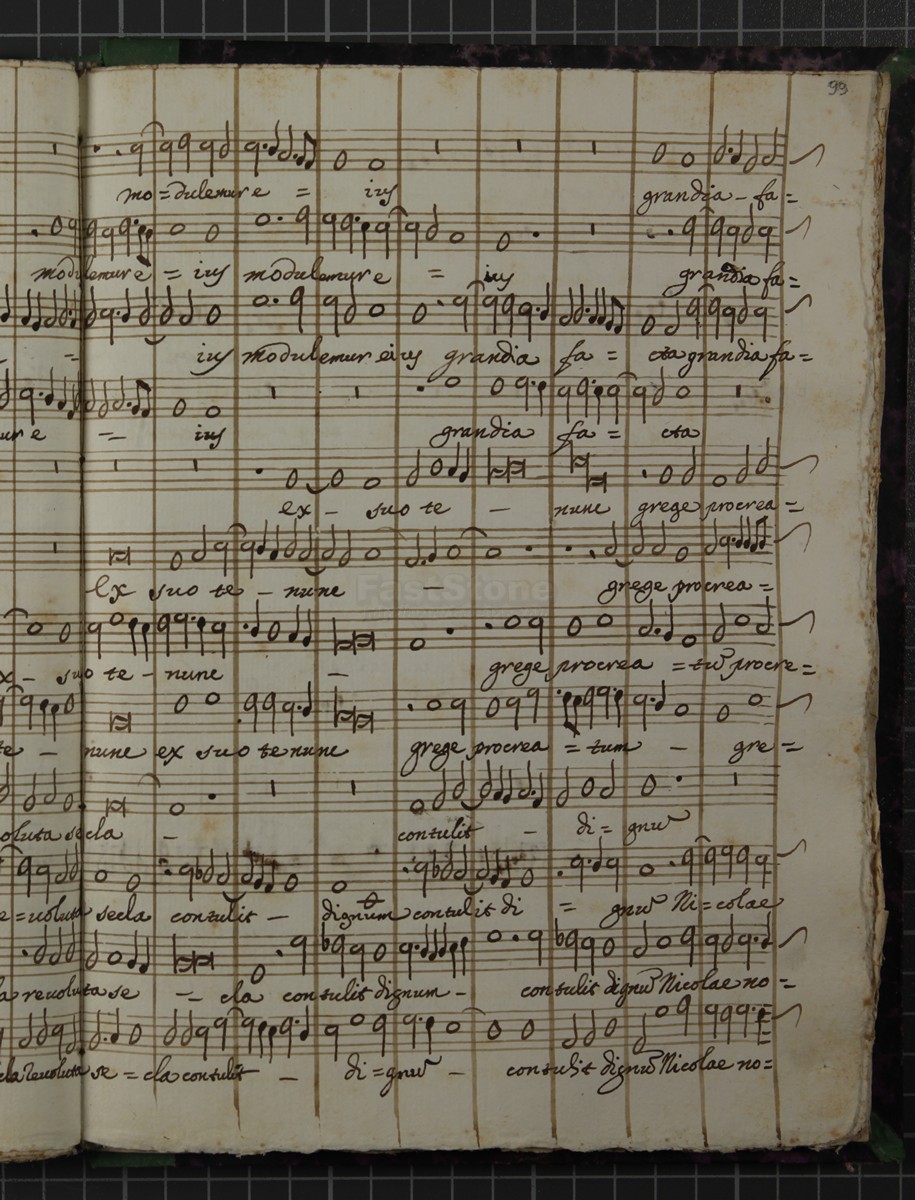 99
mo = dulemur e = ius grandia - fa =
modulemur e = ius modulemur e = ius grandia fa =
- = ius modulemur eius grandia fa = cta grandia fa =
ur e - = ius grandia fa = cta
ex - suo te - nunc grege procrea =
Ex suo te - nunc - grege procrea =
x - suo te - nunc - grege procrea = tũ procre =
te - nunc ex suo te nunc grege procrea = tum - gre =
oluta secla - contulit - di = gnũ
FastStone
e = uoluta secla contulit - dignum contulit di = gnũ Ni = colae
a reuoluta se - = cla contulit dignum - contulit dignũ Nicolae no =
cla Reuoluta se = cla contulit - di = gnũ - contulit dignũ Nicolae no =